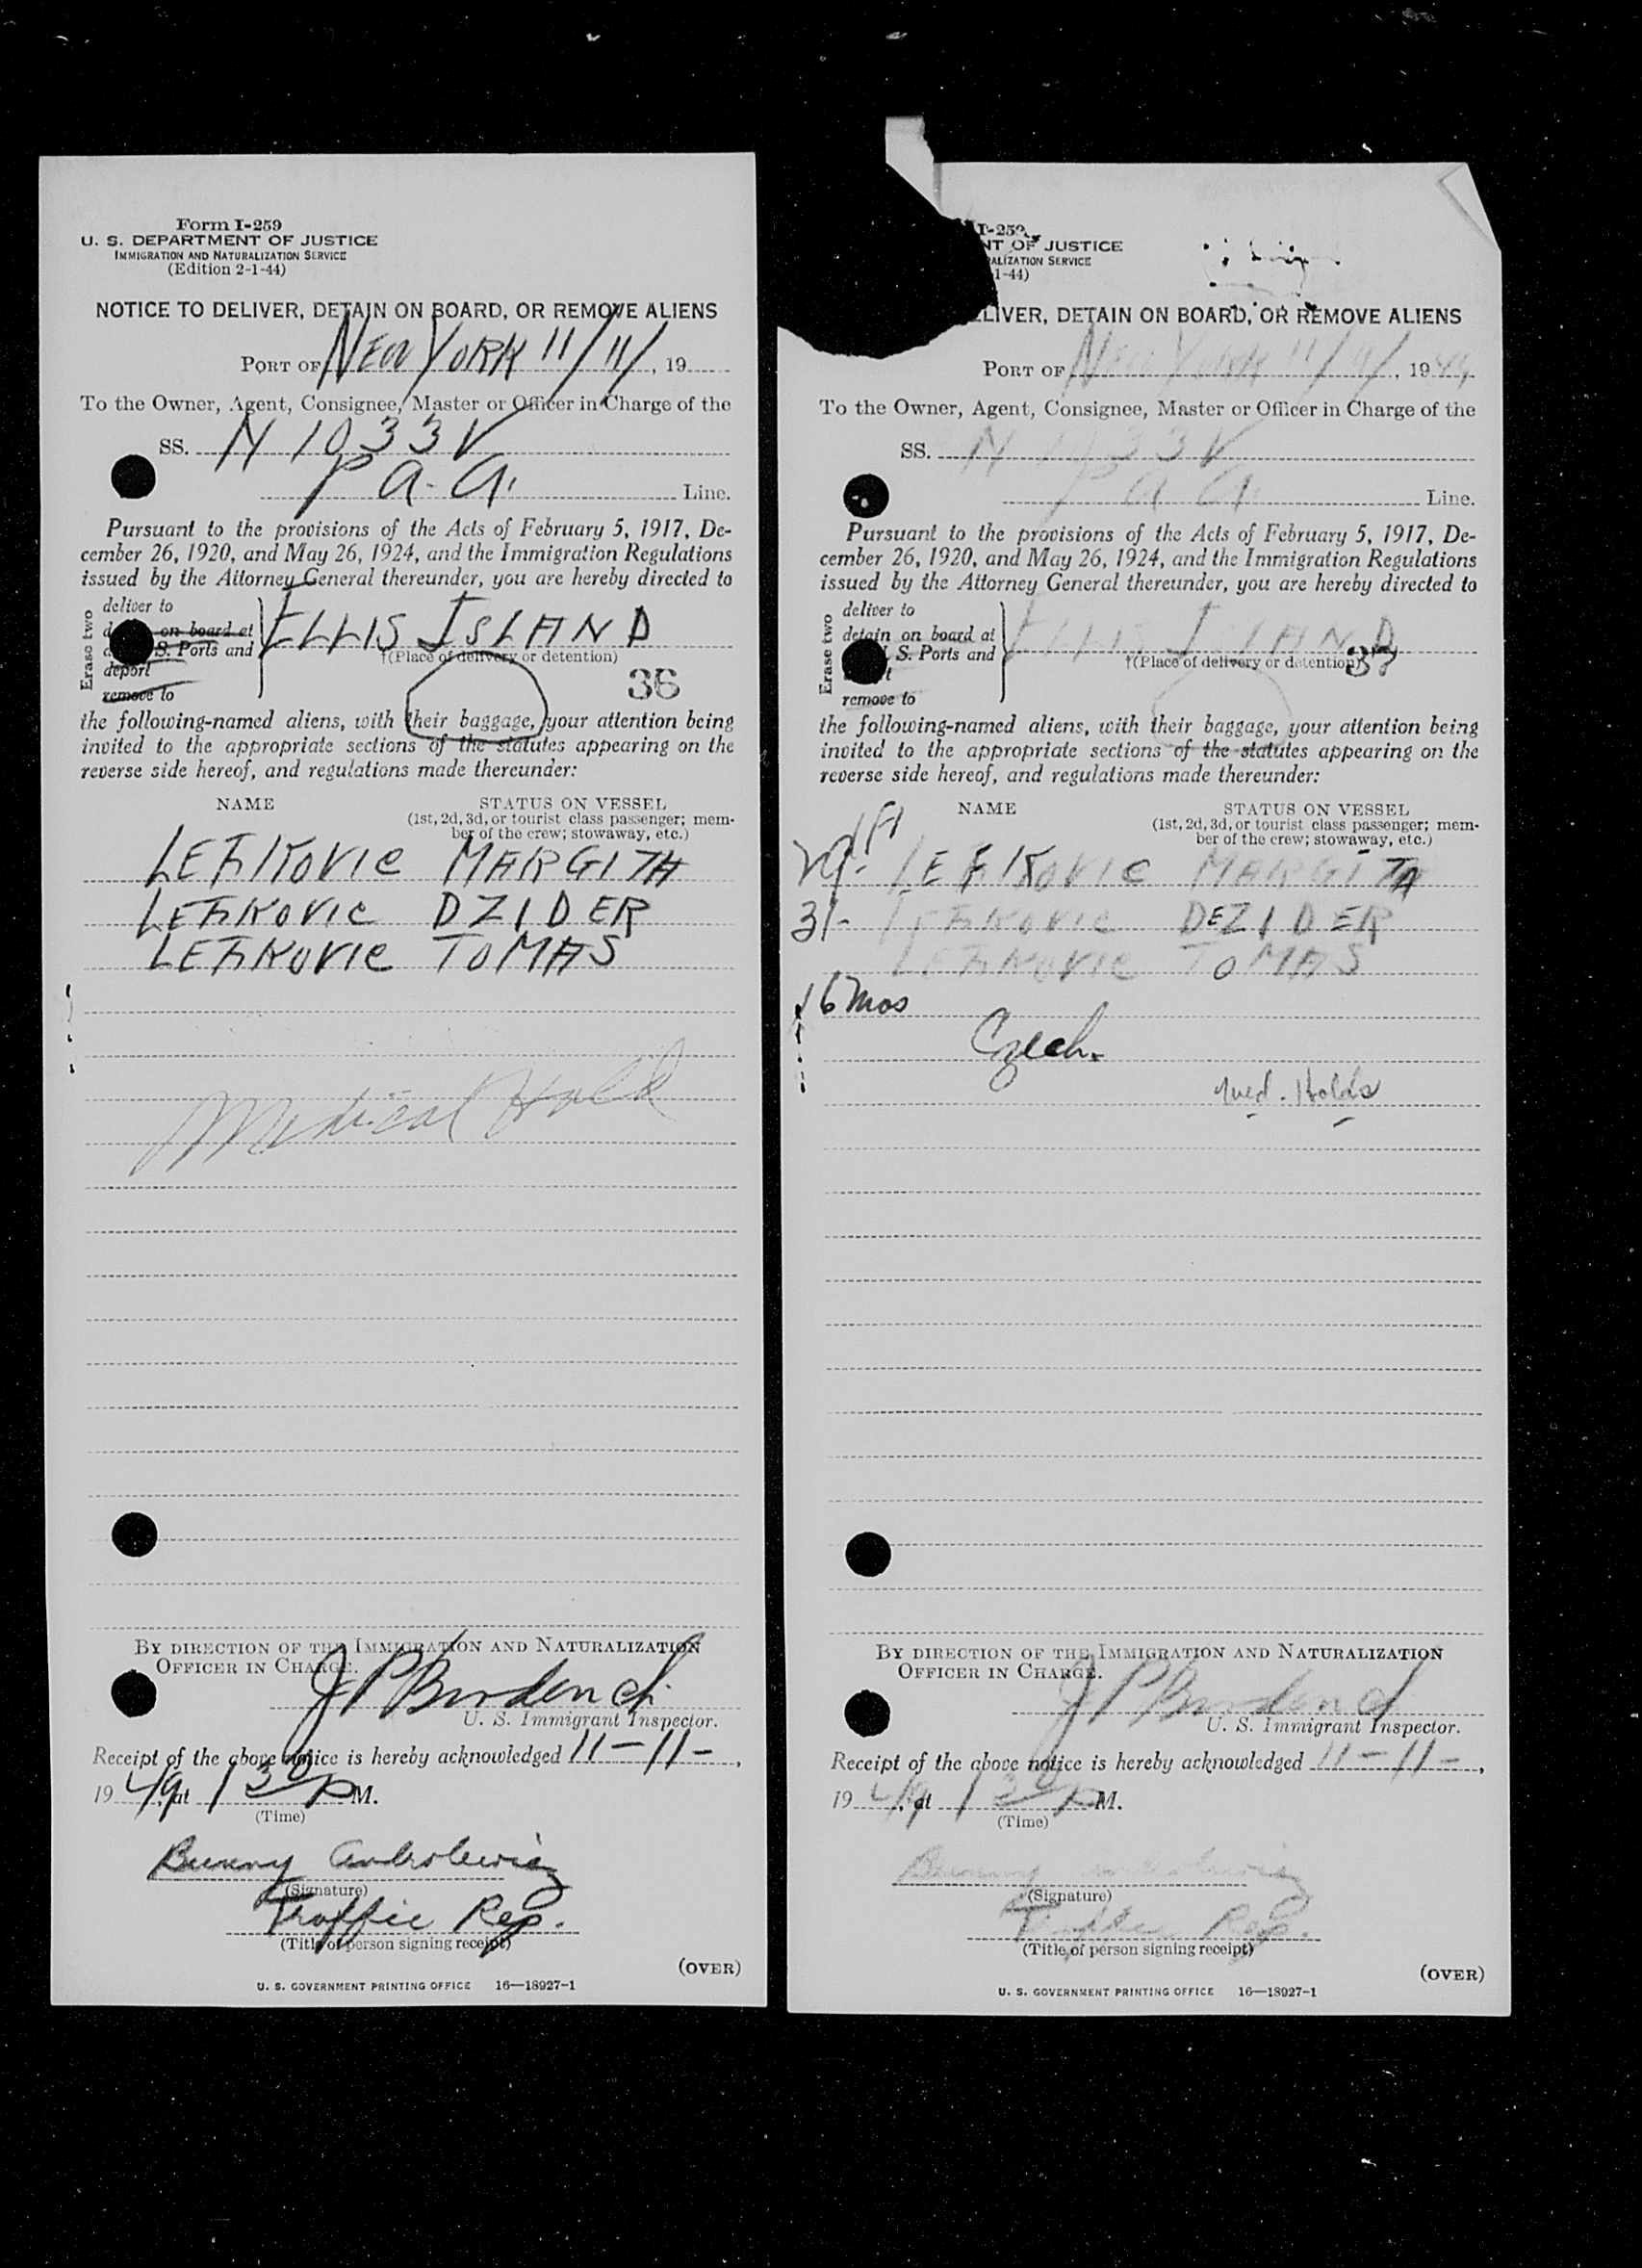 Form I-259
U. S. DEPARTMENT OF JUSTICE
IMMIGRATION AND NATURALIZATION SERVICE
(Edition 2-1-44)
NOTICE TO DELIVER, DETAIN ON BOARD, OR REMOVE ALIENS
PORT OF NEW YORK 11/11/, 19
To the Owner, Agent, Consignee, Master or Officer in Charge of the
SS. N 1033V
P.A.A. Line.
Pursuant to the provisions of the Acts of February 5, 1917, De-
cember 26, 1920, and May 26, 1924, and the Immigration Regulations
issued by the Attorney General thereunder, you are hereby directed to
Erase two
deliver to
on board at
S. Ports and
deport
remove to
ELLIS ISLAND
†(Place of delivery or detention)
36
the following-named aliens, with their baggage, your attention being
invited to the appropriate sections of the statutes appearing on the
reverse side hereof, and regulations made thereunder:
NAME STATUS ON VESSEL
(1st, 2d, 3d, or tourist class passenger; mem-
ber of the crew; stowaway, etc.)
LEFKOVIC MARGITA
LEFKOVIC DZIDER
LEFKOVIC TOMAS
Medical Hold
BY DIRECTION OF THE IMMIGRATION AND NATURALIZATION
OFFICER IN CHARGE.
U. S. Immigrant Inspector.
Receipt of the above notice is hereby acknowledged 11-11-,
1949, at 130 P M.
(Time)
Bunny
(Signature)
Traffic Rep.
(Title of person signing receipt)
(OVER)
U. S. GOVERNMENT PRINTING OFFICE 16—18927-1
I-259
NT OF JUSTICE
ALIZATION SERVICE
1-44)
ELIVER, DETAIN ON BOARD, OR REMOVE ALIENS
PORT OF NEW YORK 11/11/, 1949
To the Owner, Agent, Consignee, Master or Officer in Charge of the
SS. N 1033V
P A A. Line.
Pursuant to the provisions of the Acts of February 5, 1917, De-
cember 26, 1920, and May 26, 1924, and the Immigration Regulations
issued by the Attorney General thereunder, you are hereby directed to
Erase two
deliver to
detain on board at
S. Ports and
remove to
ELLIS ISLAND
†(Place of delivery or detention)
the following-named aliens, with their baggage, your attention being
invited to the appropriate sections of the statutes appearing on the
reverse side hereof, and regulations made thereunder:
NAME STATUS ON VESSEL
(1st, 2d, 3d, or tourist class passenger; mem-
ber of the crew; stowaway, etc.)
LEFKOVIC MARGITA
31- LEFKOVIC DEZIDER
LEFKOVIC TOMAS
16 mos
Czech.
Med. Holds
BY DIRECTION OF THE IMMIGRATION AND NATURALIZATION
OFFICER IN CHARGE.
U. S. Immigrant Inspector.
Receipt of the above notice is hereby acknowledged 11-11-,
1949, at 130 P M.
(Time)
Bunny
(Signature)
Traffic Rep.
(Title of person signing receipt)
(OVER)
U. S. GOVERNMENT PRINTING OFFICE 16—18927-1